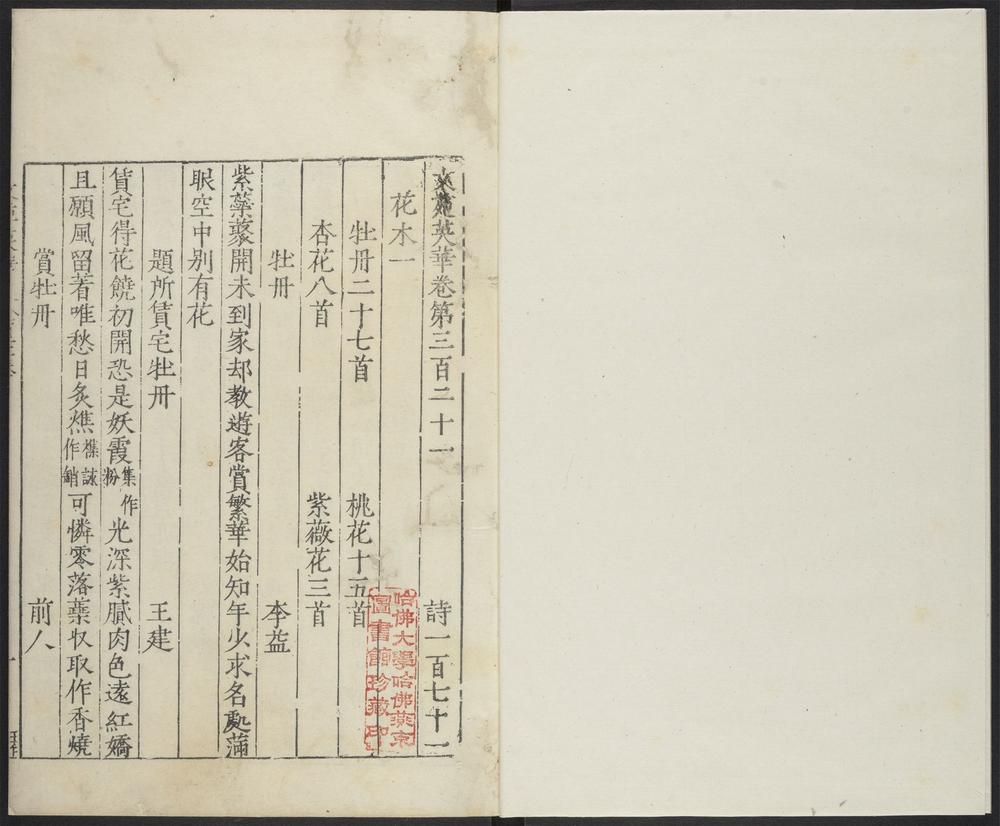 文苑英華卷第三百二十一 詩一百七十一
花木一
牡丹二十七首 桃花十五首
杏花八首 紫薇花三首
牡丹 李益
紫蘂叢開未到家却教遊客賞繁華始知年少求名處滿
眼空中别有花
題所賃宅牡丹 王建
賃宅得花饒初開恐是妖霞集作粉光深紫膩肉色遠紅嬌
且願風留著唯愁日炙燋雜詠作銷可憐零落蘂収取作香燒
賞牡丹 前人
哈佛大學哈佛燕京
圖書館珍藏印